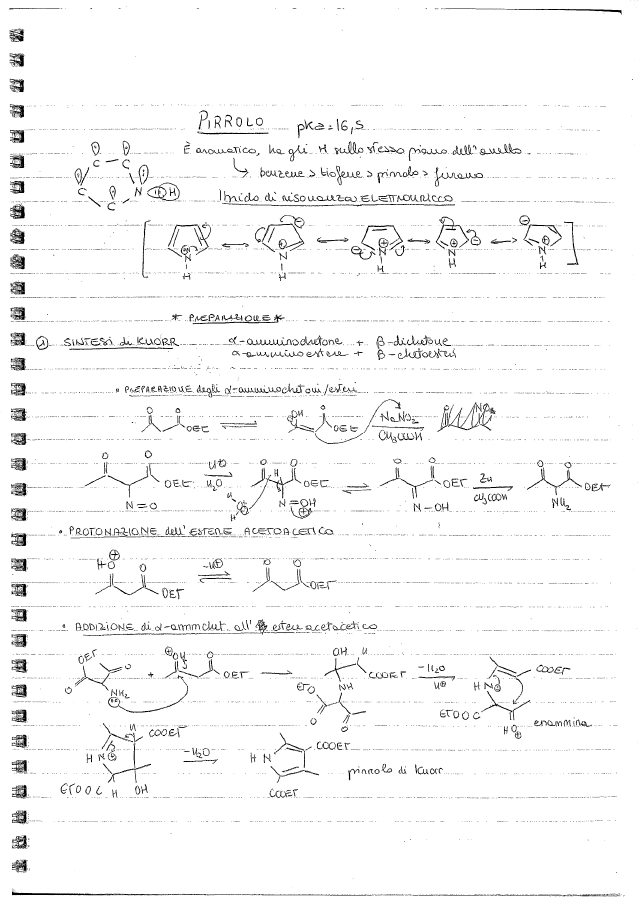 PIRROLO pKa = 16,5
È aromatico, ha gli H sullo stesso piano dell'anello.
↳ benzene > tiofene > pirrolo > furano
Ibrido di risonanza ELETTRONRICCO
* PREPARAZIONE *
① SINTESI di KNORR α-amminochetone + β-dichetone
α-amminoestere + β-chetoesteri
• PREPARAZIONE degli α-amminochetoni/esteri
O O OEt ⇌ OH O OEt NaNO2 CH3COOH
O O OEt N=O H⊕ H2O O O OEt H N=OH ⊕ ⇌ O O OEt N-OH Zn CH3COOH O O OEt NH2
• PROTONAZIONE dell'ESTERE ACETOACETICO
HO ⊕ O OEt -H⊕ O O OEt
• ADDIZIONE di α-ammchet. all' estere acetacetico
OEt O O NH2 + ⊕OH O OEt → OH H COOEt NH EtO O O -H2O H⊕ COOEt HN EtOOC HO ⊕ enammina
H COOEt HN ⊕ EtOOC H OH -H2O → H N COOEt COOEt pirrolo di Knorr